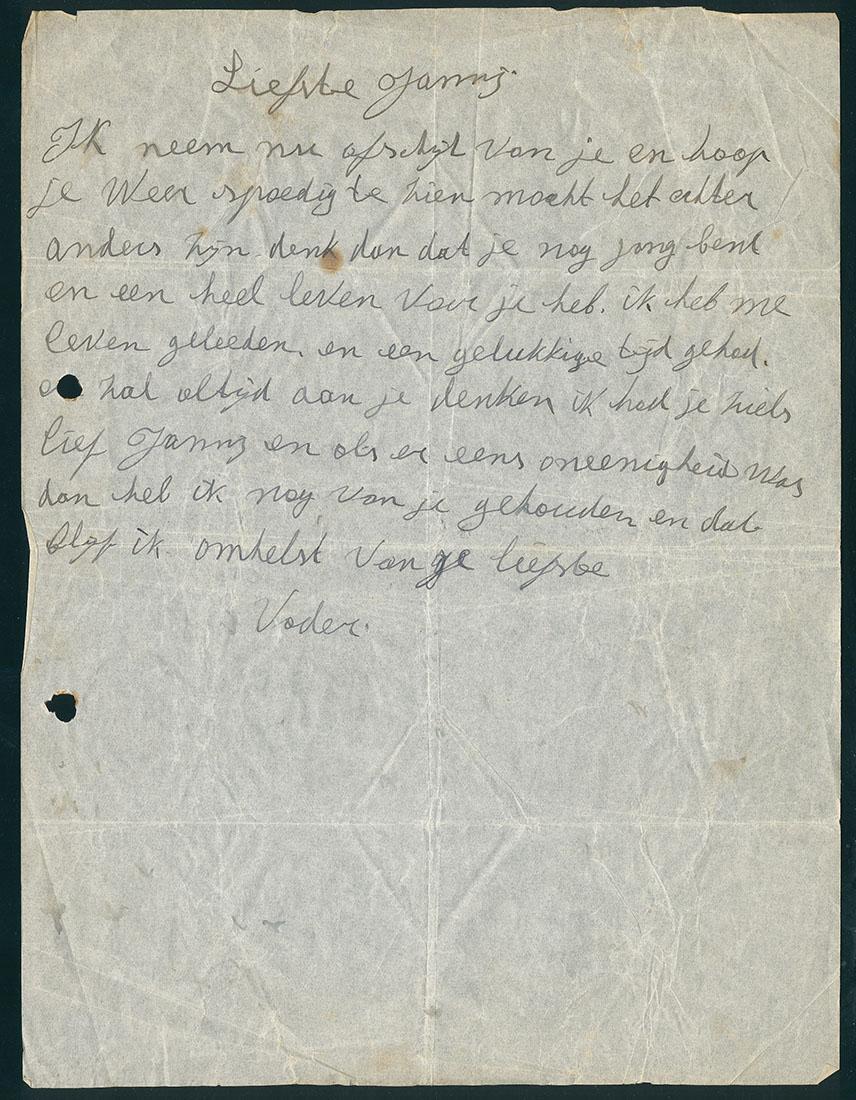 Liefste Janny.
Ik neem nu afschijt van je en hoop
je Weer spoedig te zien mocht het echter
anders zijn denk dan dat je nog jong bent
en een heel leven voor je heb. ik heb me
leven geleeden. en een gelukkige tijd gehad.
zal altijd aan je denken ik had je ziels
lief Janny en als er eens oneenigheid was
dan heb ik nog van je gehouden en dat
blyf ik omhelst van je liefste
Vader.